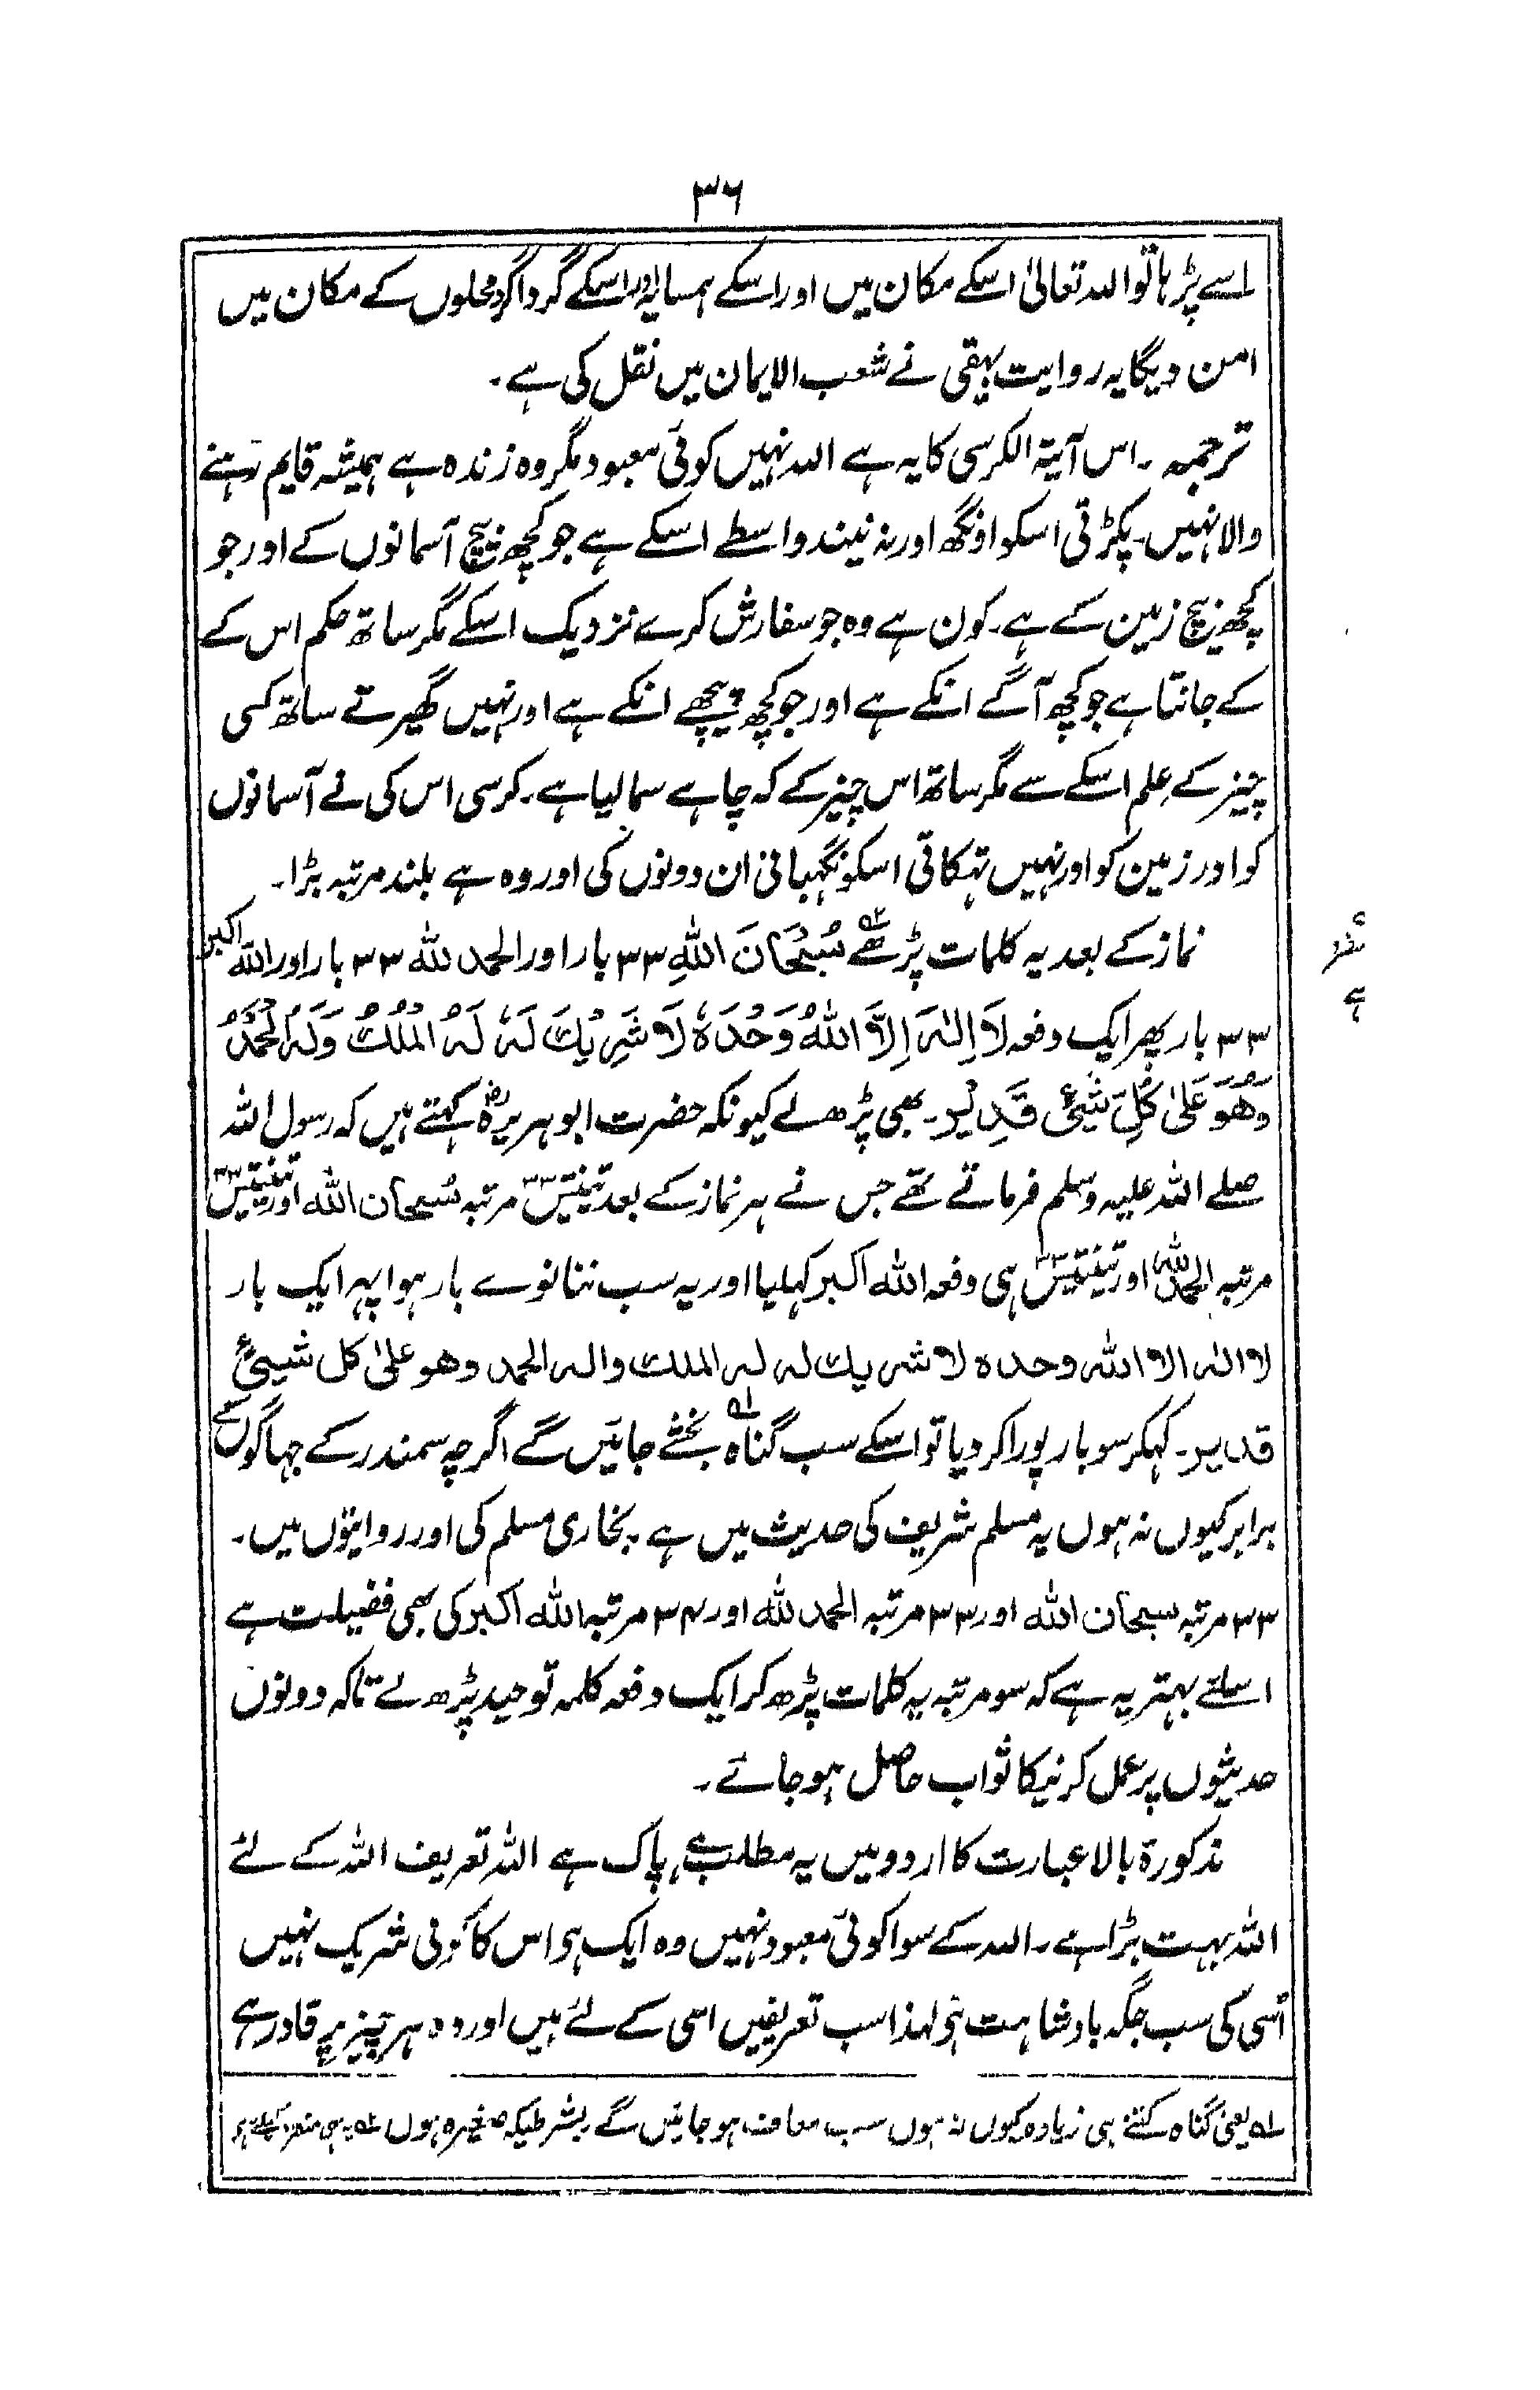 ۳۶
اسے پڑہا تو اللہ تعالیٰ اسکے مکان میں اور اسکے ہمسایہ اور اسکے گرداگرد محلوں کے مکان میں
امن دیگا یہ روایت بیہقی نے شعب الایمان میں نقل کی ہے۔
ترجمہ۔ اس آیۃ الکرسی کا یہ ہے اللہ نہیں کوئی معبود مگر وہ زندہ ہے ہمیشہ قایم رہنے
والا نہیں۔ پکڑتی اسکو اونگھ اور نہ نیند واسطے اسکے ہے جو کچھ بیچ آسمانوں کے اور جو
کچھ بیچ زمین کے ہے۔ کون ہے وہ جو سفارش کرے نزدیک اسکے مگر ساتھ حکم اس کے
کے جانتا ہے جو کچھ آگے انکے ہے اور جو کچھ پیچھے انکے ہے اور نہیں گھیرتے ساتھ کسی
چیز کے علم اسکے سے مگر ساتھ اس چیز کے کہ چاہے سما لیا ہے۔ کرسی اس کی نے آسمانوں
کو اور زمین کو اور نہیں تہکاتی اسکو نگہبانی ان دونوں کی اور وہ ہے بلند مرتبہ بڑا۔
نماز کے بعد یہ کلمات پڑھے ۲ سُبْحَانَ اللهِ ۳۳ بار اور الحمد لله ۳۳ بار اور الله اکبر
۳۳ بار پھر ایک دفعہ لَا اِلٰہَ اِلَّا اللهُ وَحْدَهٗ لَا شَرِیْكَ لَهٗ لَهُ الْمُلْكُ وَلَهُ الْحَمْدُ
وَهُوَ عَلٰی كُلِّ شَیْءٍ قَدِیْر۔ بھی پڑھ لے کیونکہ حضرت ابو ہریرہؓ کہتے ہیں کہ رسول اللہ
صلے اللہ علیہ وسلم فرماتے تھے جس نے ہر نماز کے بعد تینتیس ۳۳ مرتبہ سُبحان الله اور تینتیس ۳۳
مرتبہ الحمد لله اور تینتیس ۳۳ ہی دفعہ الله اکبر کہلیا اور یہ سب ننانوے بار ہوا پہر ایک بار
لا الٰہ الا الله وحده لا شریك له له الملك واله الحمد وهو علیٰ كل شییءٍ
قدیر۔ کہکر سو بار پورا کر دیا تو اسکے سب گناہ ۱ بخشے جائیں گے اگرچہ سمندر کے جہاگوں کے
برابر کیوں نہ ہوں یہ مسلم شریف کی حدیث میں ہے۔ بخاری مسلم کی اور روایتوں میں۔
۳۳ مرتبہ سبحان الله اور ۳۳ مرتبہ الحمد لله اور ۳۴ مرتبہ الله اکبر کی بھی فضیلت ہے
اسلئے بہتر یہ ہے کہ سو مرتبہ یہ کلمات پڑھ کر ایک دفعہ کلمہ توحید پڑھ لے تاکہ دونوں
حدیثوں پر عمل کرنیکا ثواب حاصل ہو جائے۔
مذکورۃ بالا عبارت کا اردو میں یہ مطلب ہے، پاک ہے اللہ تعریف اللہ کے لئے
اللہ بہت بڑا ہے۔ اللہ کے سوا کوئی معبود نہیں وہ ایک ہے اس کا کوئی شریک نہیں
اُسی کی سب جگہ بادشاہت ہے لہذا سب تعریفیں اسی کے لئے ہیں اور وہ ہر چیز پر قادر ہے
۱ یعنی گناہ کتنے ہی زیادہ کیوں نہ ہوں سب معاف ہو جائیں گے بشرطیکہ صغیرہ ہوں ۲ یہ ہی
ہے